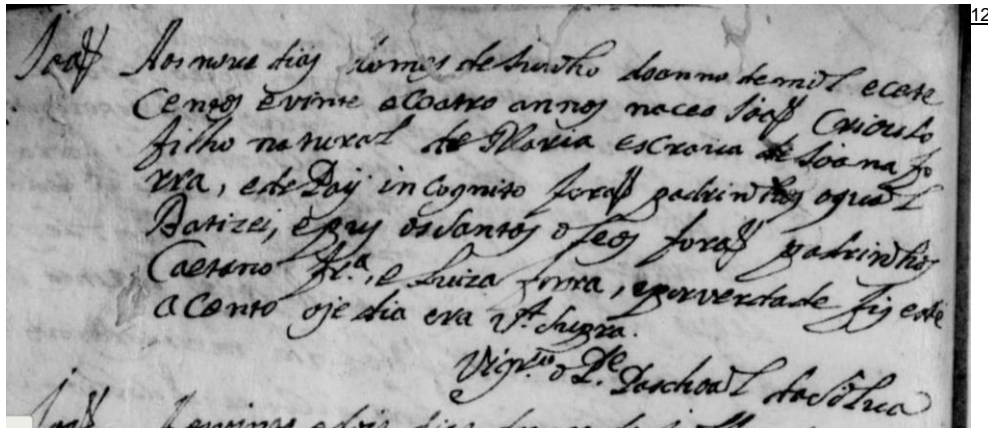 12
Joaõ Aos nove dias do mes de Junho do anno de mil e cete
Centos e vinte e Coatro annos naceo Joaõ Crioulo
filho natural de Maria escrava de Joana fo
rra, e de Paÿ in cognito foraõ padrinhos o qual
Batizei, e pus os santos oleos foraõ padrinhos
Caetano Fr.ª, e Luiza forra, e por verdade fis este
acento oje dia era vt supra.
Vigr.ro o P.e Paschoal da Silva
Joaõ